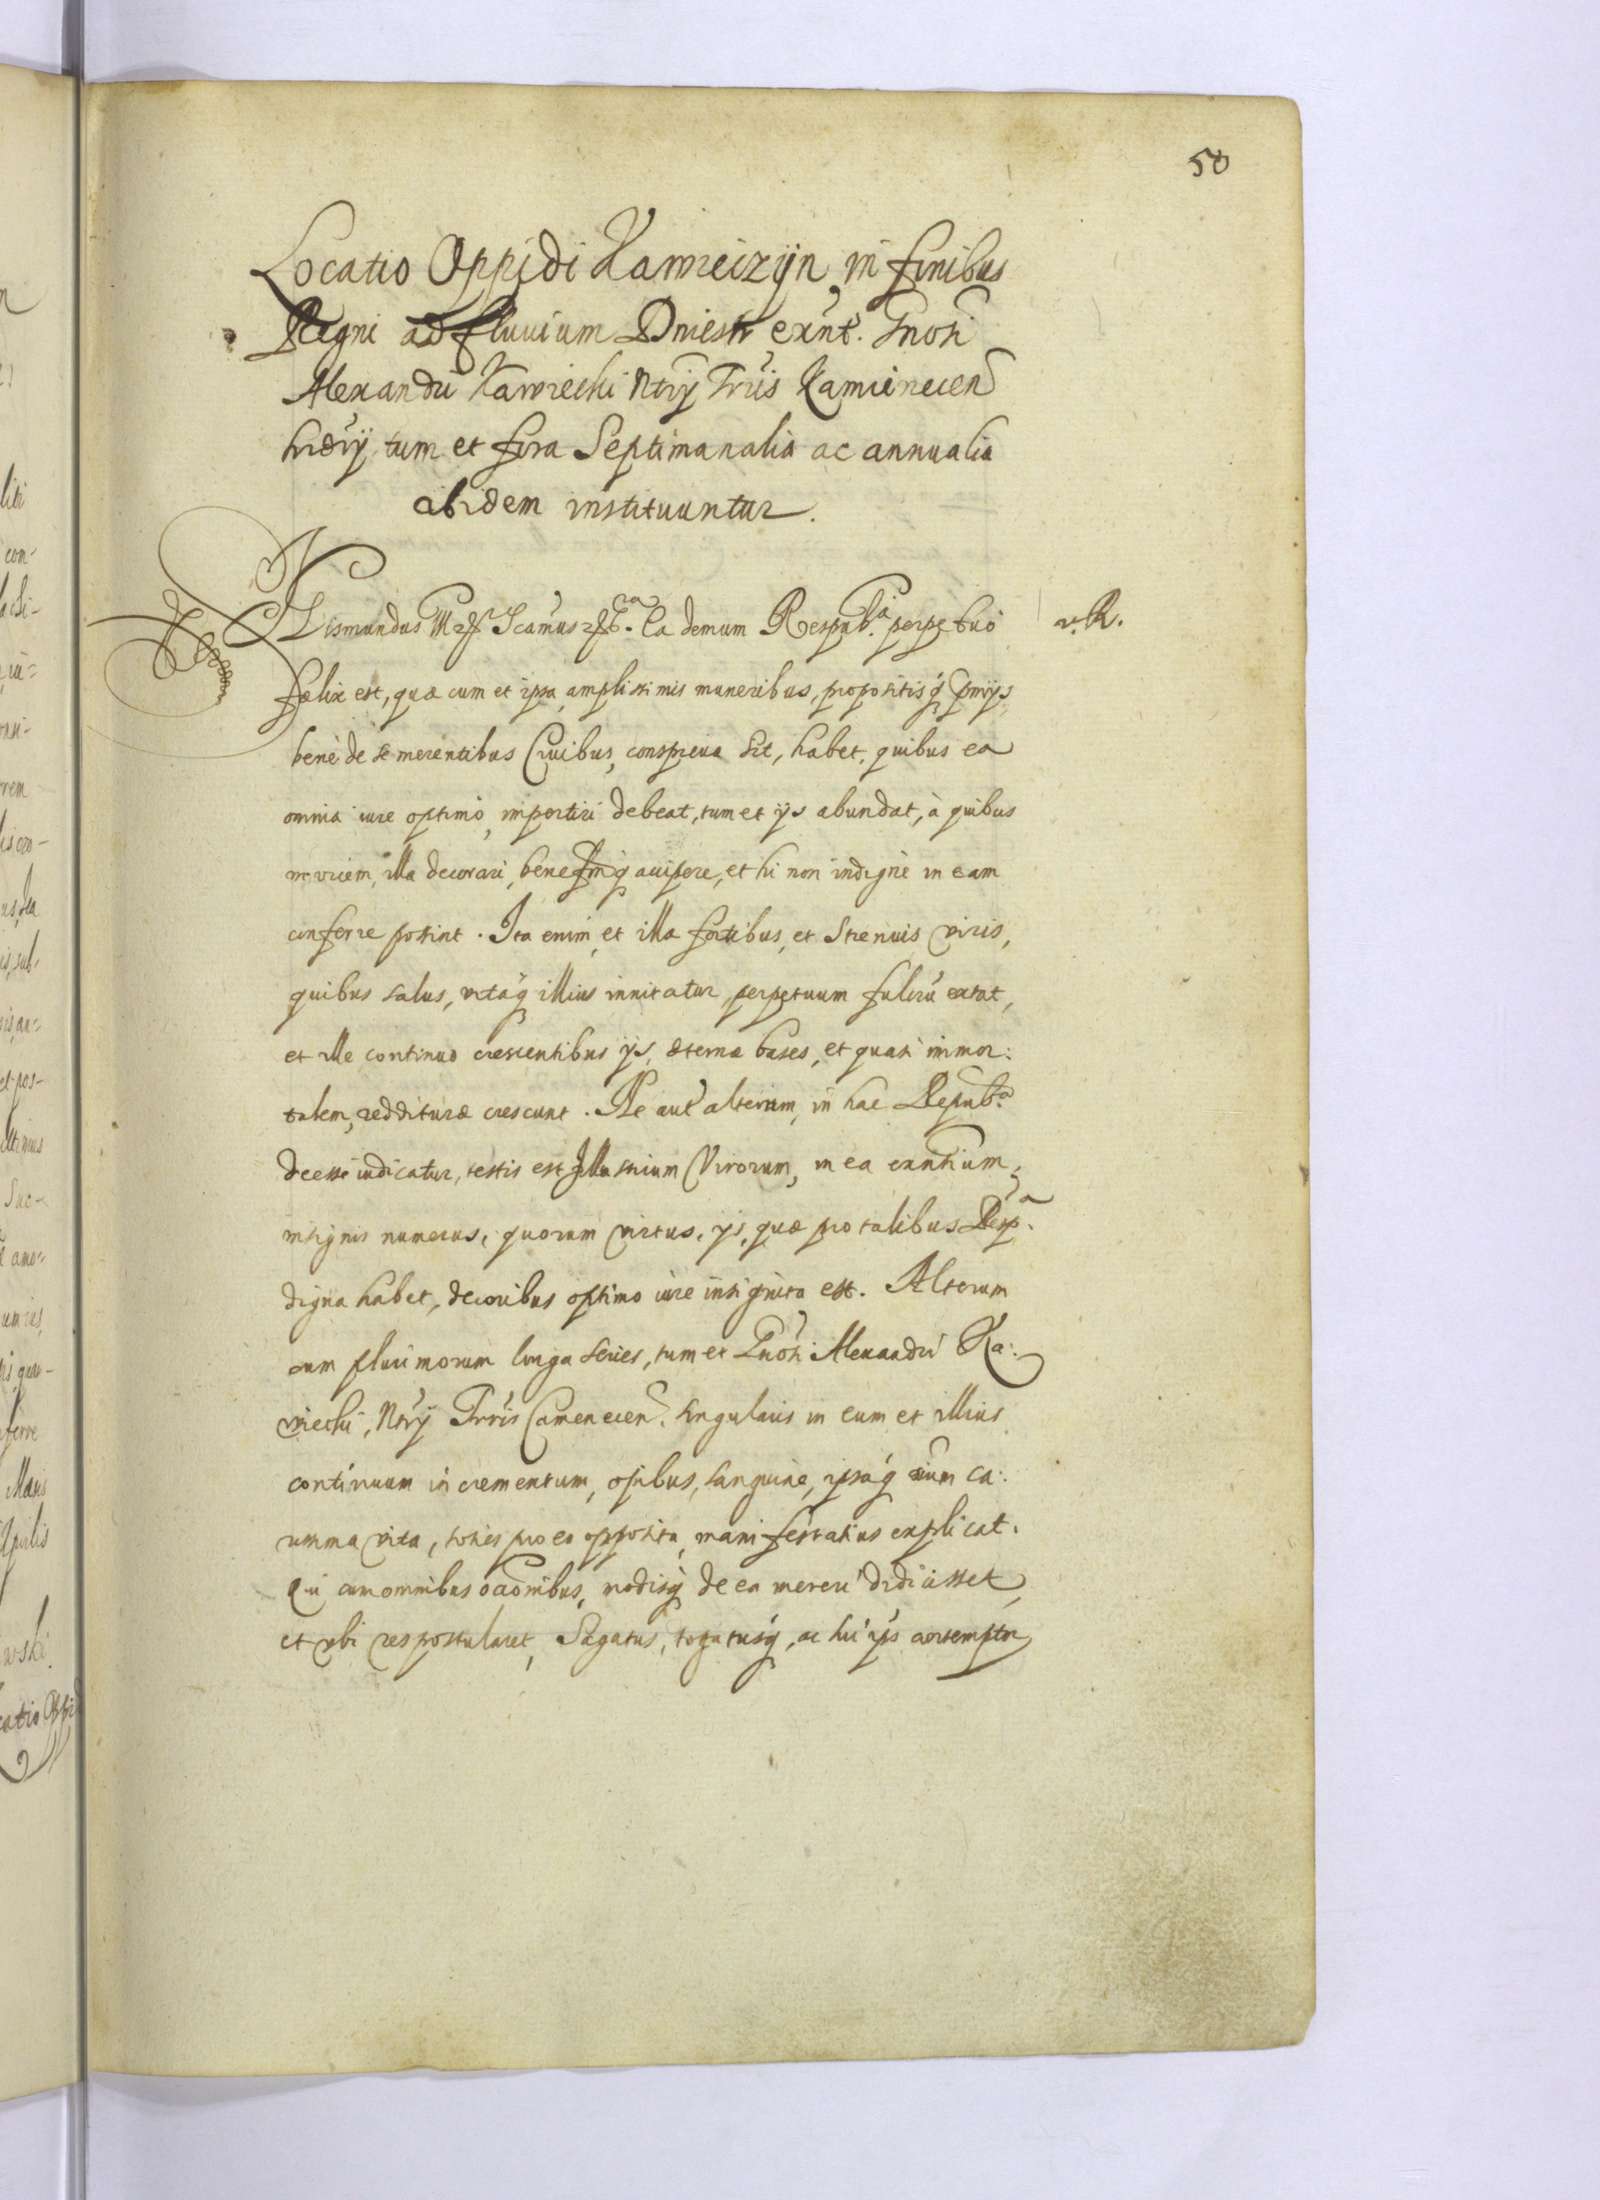 50
Locatio Oppidi Kawieczÿn, in finibus
Regni ad fluuium Dniestr exnt. Gnosi
Alexandri Kawiecki Ntrÿ Trris Kamienecen
hrdrÿ, tum et fora Septimanalia ac annualia
ibidem instituuntur.
Sigismundus etc. Scamus etc. Ea demum Respub.ca perpetuò
v. R.
fælix est, quæ cum et ipsa, amplissimis muneribus, propositisq pmÿs,
benè de se merentibus Ciuibus, conspicua sit, habet, quibus ea
omnia iure optimò, impertiri debeat, tum et ÿs abundat, à quibus
inuicem, illa decorari, benefq accipere, et hi non indignè in eam
conferre possint. Ita enim, et illa fortibus, et Strenuis viris,
quibus salus, vitaq illius innitatur, perpetuum fulcrū extat,
et ille continuò crescentibus ÿs, æternæ bases, et quasi immor:
talem, redditura crescunt. Ne aut alterum, in hac Repub.ca
deesse iudicatur, testis est Illustrium Virorum, in ea exntium,
insignis numerus, quorum virtus, ÿs, quæ pro talibus Resp.ca
digna habet, decoribus optimo iure insignita est. Alterum
cum plurimorum longa series, tum et Gnosi Alexandri Ka:
wiecki, Ntrÿ Trris Camenecen. singularis in eum et illius
continuum incrementum, opibus, sanguine, ipsaq cum ca:
rissima vita, toties pro eo opposita, manifestatius explicat.
Qui cum omnibus ocaonibus, modisq de ea mereri didicisset,
et vbi res postularet, Sagatus, togatusq, ac hic ÿs